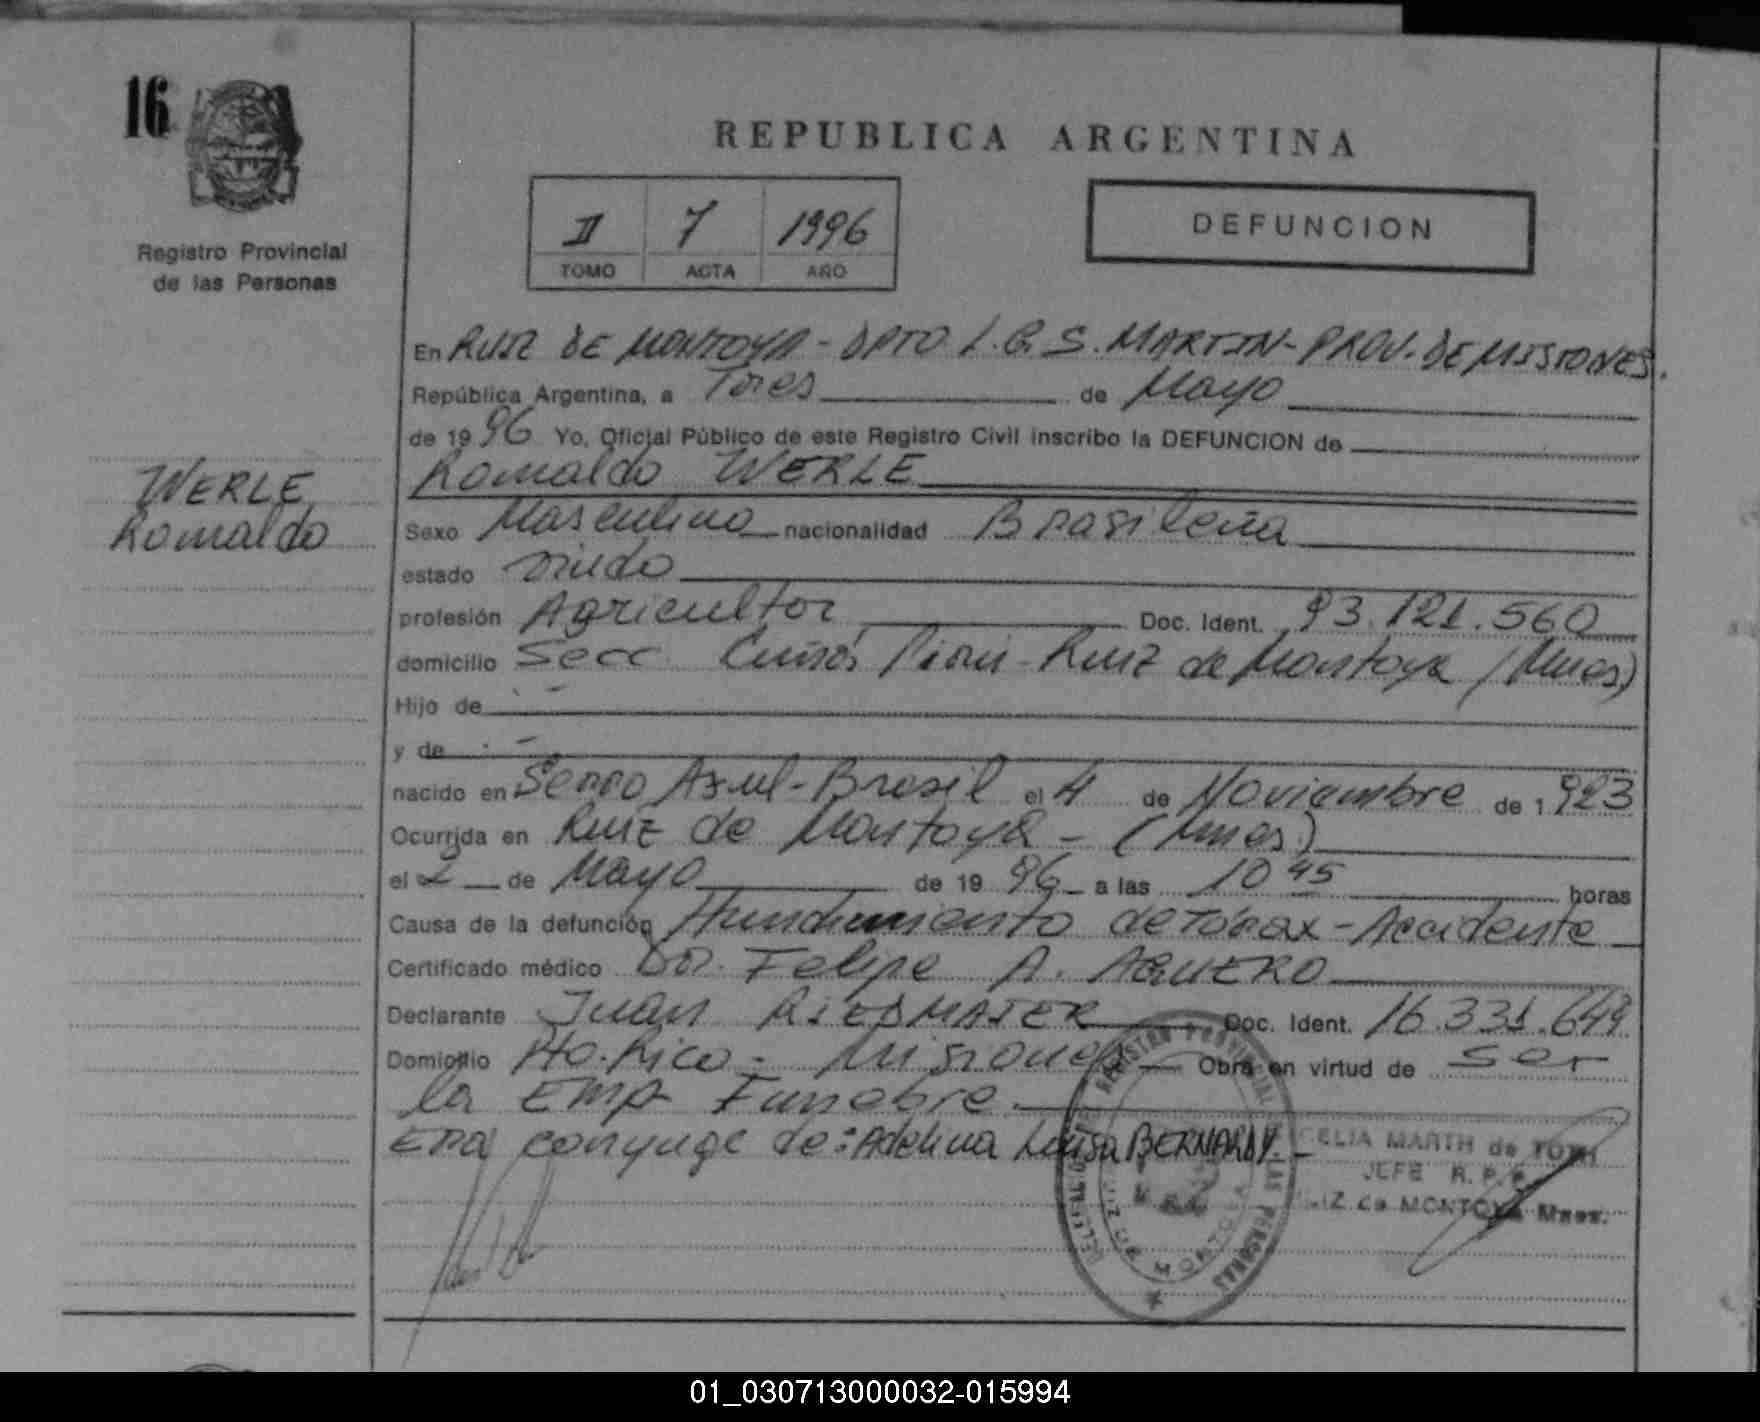 16
Registro Provincial
de las Personas
REPUBLICA ARGENTINA
II 7 1996
TOMO ACTA AÑO
DEFUNCION
En RUIZ DE MONTOYA - DPTO L.G.S. MARTIN - PROV. DE MISIONES.
República Argentina, a Tres de Mayo
de 1996 Yo, Oficial Público de este Registro Civil inscribo la DEFUNCION de
Romaldo WERLE
WERLE
Romaldo
Sexo Masculino nacionalidad Brasileña
estado viudo
profesión Agricultor Doc. Ident. 93.121.560
domicilio Secc. Cuñá Pirú - Ruiz de Montoya (Mnes)
Hijo de -
y de -
nacido en Serro Azul - Brasil el 4 de Noviembre de 1923
Ocurrida en Ruiz de Montoya - (Mnes)
el 2 de Mayo de 1996 a las 10 45 horas
Causa de la defunción Hundimiento de Tórax - Accidente
Certificado médico Dr. Felipe A. AGUERO
Declarante Juan RIEDMAIER Doc. Ident. 16.331.649
Domicilio Pto. Rico - Misiones Obra en virtud de ser
la Emp Funebre
Era conyuge de: Adelina Luisa BERNARDY. -
CELIA MARTH de TOTH
JEFE R. P. P.
RUIZ de MONTOYA Mnes.
REGISTRO PROVINCIAL DE LAS PERSONAS
RUIZ DE MONTOYA
01_030713000032-015994